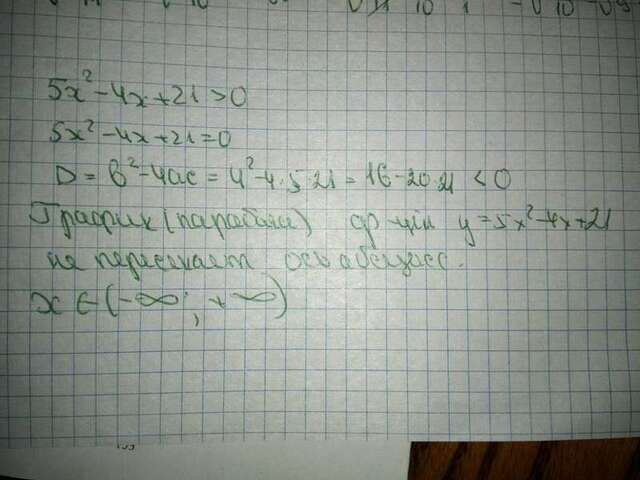 5x² - 4x + 21 > 0
5x² - 4x + 21 = 0
D = b² - 4ac = 4² - 4·5·21 = 16 - 20·21 < 0
График (парабола) ф-ции y = 5x² - 4x + 21
не пересекает ось абсцисс.
x ∈ (-∞; +∞)